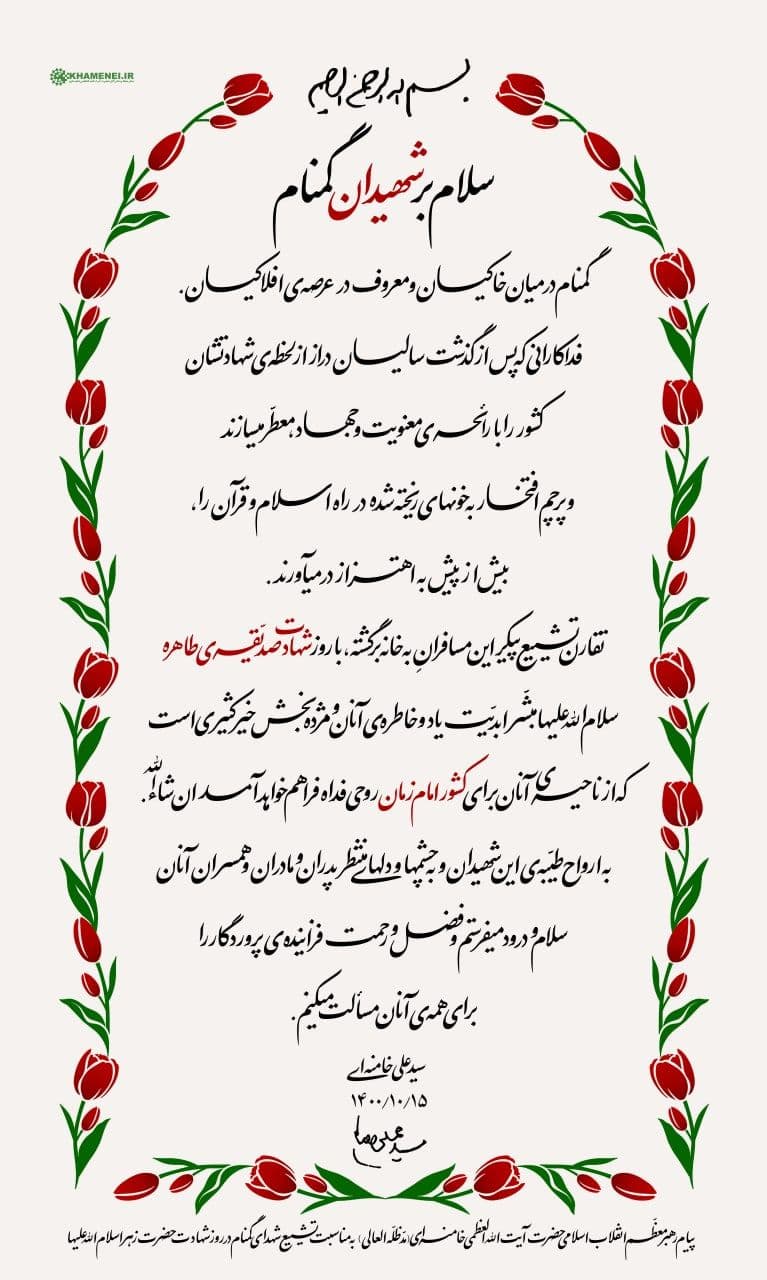 KHAMENEI.IR
بسم الله الرحمن الرحیم
سلام بر شهیدان گمنام
گمنام در میان خاکیان و معروف در عرصه‌ی افلاکیان.
فداکارانی که پس از گذشت سالیان دراز از لحظه‌ی شهادتشان
کشور را با رائحه‌ی معنویت و جهاد، معطّر میسازند
و پرچم افتخار به خونهای ریخته شده در راه اسلام و قرآن را،
بیش از پیش به اهتزاز درمی‌آورند.
تقارن تشییع پیکر این مسافرانِ به خانه برگشته، با روز شهادت صدّیقه‌ی طاهره
سلام الله علیها مبشّر ابدیّت یاد و خاطره‌ی آنان و مژده‌بخش خیر کثیری است
که از ناحیه‌ی آنان برای کشور امام زمان روحی فداه فراهم خواهد آمد ان شاءالله.
به ارواح طیّبه‌ی این شهیدان و به چشمها و دلهای منتظر پدران و مادران و همسران آنان
سلام و درود میفرستم و فضل و رحمت فزاینده‌ی پروردگار را
برای همه‌ی آنان مسألت میکنم.
سید علی خامنه‌ای
۱۴۰۰/۱۰/۱۵
پیام رهبر معظّم انقلاب اسلامی حضرت آیت الله العظمی خامنه‌ای (مدّ ظلّه العالی) به مناسبت تشییع شهدای گمنام در روز شهادت حضرت زهرا سلام الله علیها